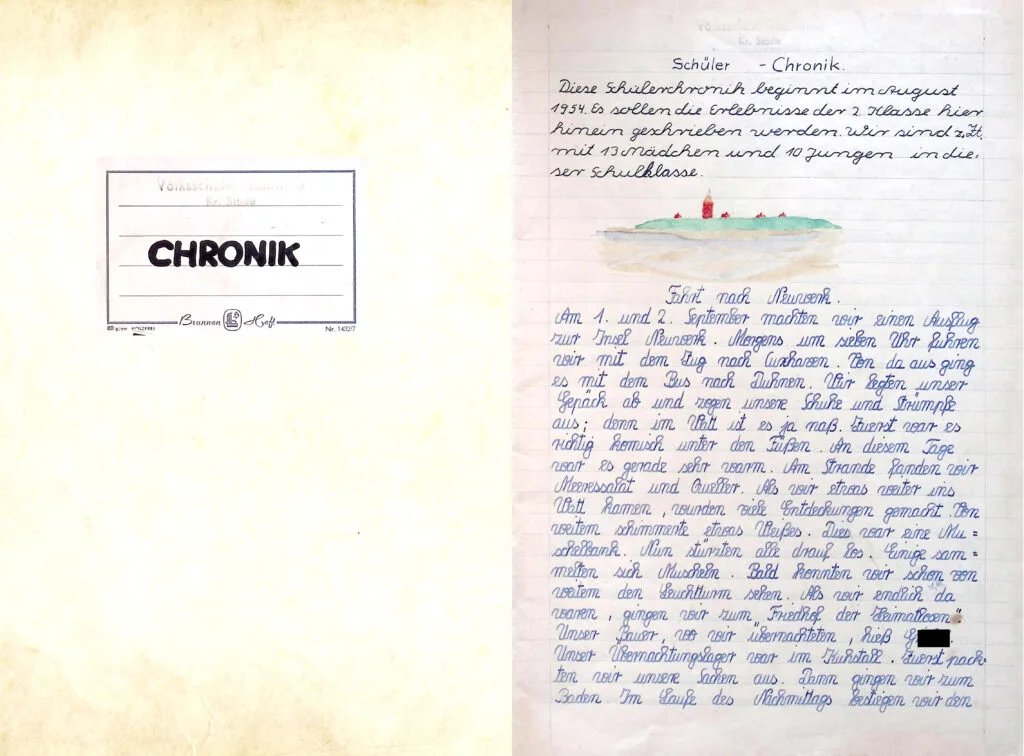 Volksschule
Kr. Stade
CHRONIK
Brunnen Heft
80 g/qm HOLZFREI
Nr. 1432/7
Kr. Stade
Schüler - Chronik.
Diese Schülerchronik beginnt im August
1954. Es sollen die Erlebnisse der 2. Klasse hier
hinein geschrieben werden. Wir sind z. Zt.
mit 13 Mädchen und 10 Jungen in die=
ser Schulklasse.
Fahrt nach Neuwerk.
Am 1. und 2. September machten wir einen Ausflug
zur Insel Neuwerk. Morgens um sieben Uhr fuhren
wir mit dem Zug nach Cuxhaven. Von da aus ging
es mit dem Bus nach Duhnen. Wir legten unser
Gepäck ab und zogen unsere Schuhe und Strümpfe
aus; denn im Watt ist es ja naß. Zuerst war es
richtig komisch unter den Füßen. An diesem Tage
war es gerade sehr warm. Am Strande fanden wir
Meeressalat und Queller. Als wir etwas weiter ins
Watt kamen, wurden viele Entdeckungen gemacht. Von
weitem schimmerte etwas Weißes. Dies war eine Mu=
schelbank. Nun stürzten alle drauf los. Einige sam=
melten sich Muscheln. Bald konnten wir schon von
weitem den Leuchtturm sehen. Als wir endlich da
waren, gingen wir zum Friedhof der Heimatlosen".
Unser Bauer, wo wir übernachteten, hieß G
Unser Übernachtungslager war im Kuhstall. Zuerst pack=
ten wir unsere Sachen aus. Dann gingen wir zum
Baden. Im Laufe des Nachmittags bestiegen wir den